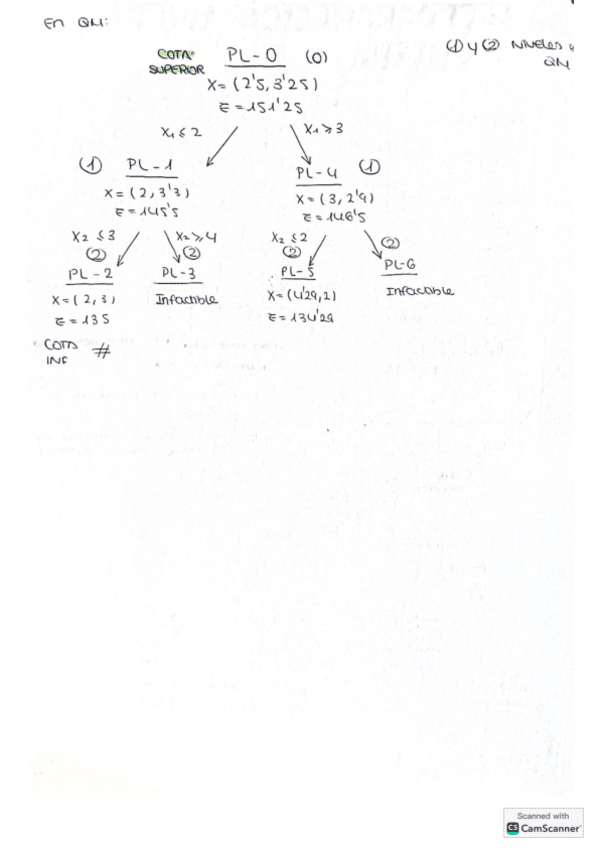 En QM:
(1) y (2) Niveles
QM
COTA SUPERIOR
PL-0 (0)
X=(2'5, 3'25)
Z=151'25
X₁≤2
X₁≥3
(1) PL-1
X=(2, 3'3)
Z=145'5
PL-4 (1)
X=(3, 2'9)
Z=146'5
X₂≤3
(2)
PL-2
X=(2, 3)
Z=135
COTA INF #
X₂≥4
(2)
PL-3
Infactible
X₂≤2
(2)
PL-5
X=(4'29, 2)
Z=134'29
(2)
PL-6
Infactible
Scanned with
CS CamScanner